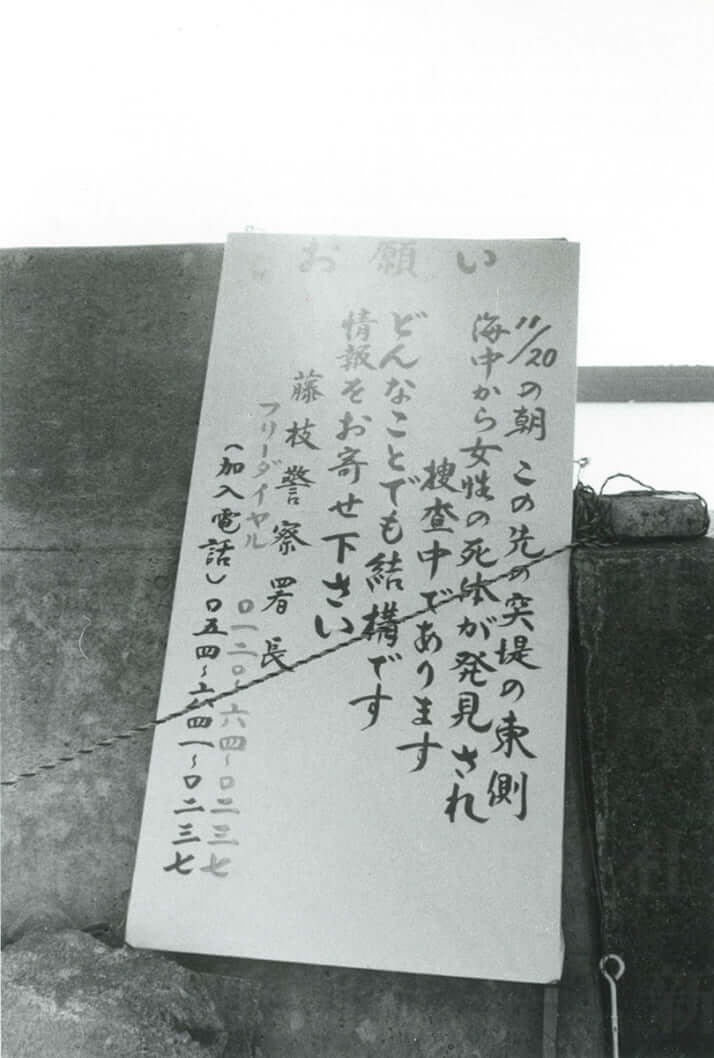 お願い
11/20の朝 この先の突堤の東側
海中から女性の死体が発見され
捜査中であります
どんなことでも結構です
情報をお寄せ下さい
藤枝警察署長
フリーダイヤル 〇一二〇〜六四〜〇二三七
(加入電話)〇五四〜六四一〜〇二三七